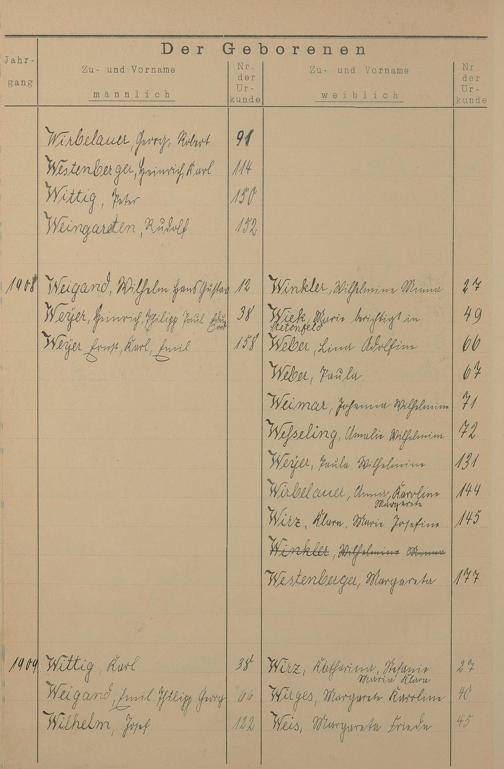 Der Geborenen
Jahr-
gang
Zu- und Vorname
männlich
Nr.
der
Ur-
kunde
Zu- und Vorname
weiblich
Nr
der
Ur-
kunde
Wirbelauer, Georg, Robert 91
Westenberger, Heinrich, Karl 114
Wittig, Peter 150
Weingarten, Rudolf 152
1908 Weigand, Wilhelm Hans Gustav 12 Winkler, Wilhelmine Minna 27
Weyer, Heinrich, Philipp Paul 38 Wiek, Marie berichtigt in 49
Stetenfeld
Weyer Ernst, Karl, Emil 158 Weber, Lina Adolfine 66
Weber, Paula 67
Weimar, Johanna Wilhelmine 71
Wesseling, Amalie Wilhelmine 72
Weyer, Paula Wilhelmine 131
Wirbelauer, Anna, Karoline 144
Margareta
Wirz, Klara, Maria Josefine 145
Winkler, Wilhelmine Minna
Westenberger, Margareta 177
1909 Wittig, Karl 38 Wirz, Katharina, Stefanie 27
Maria Klara
Weigand, Emil Philipp Georg 66 Wirges, Margareta Karoline 40
Wilhelm, Josef 122 Weis, Margareta Frieda 45